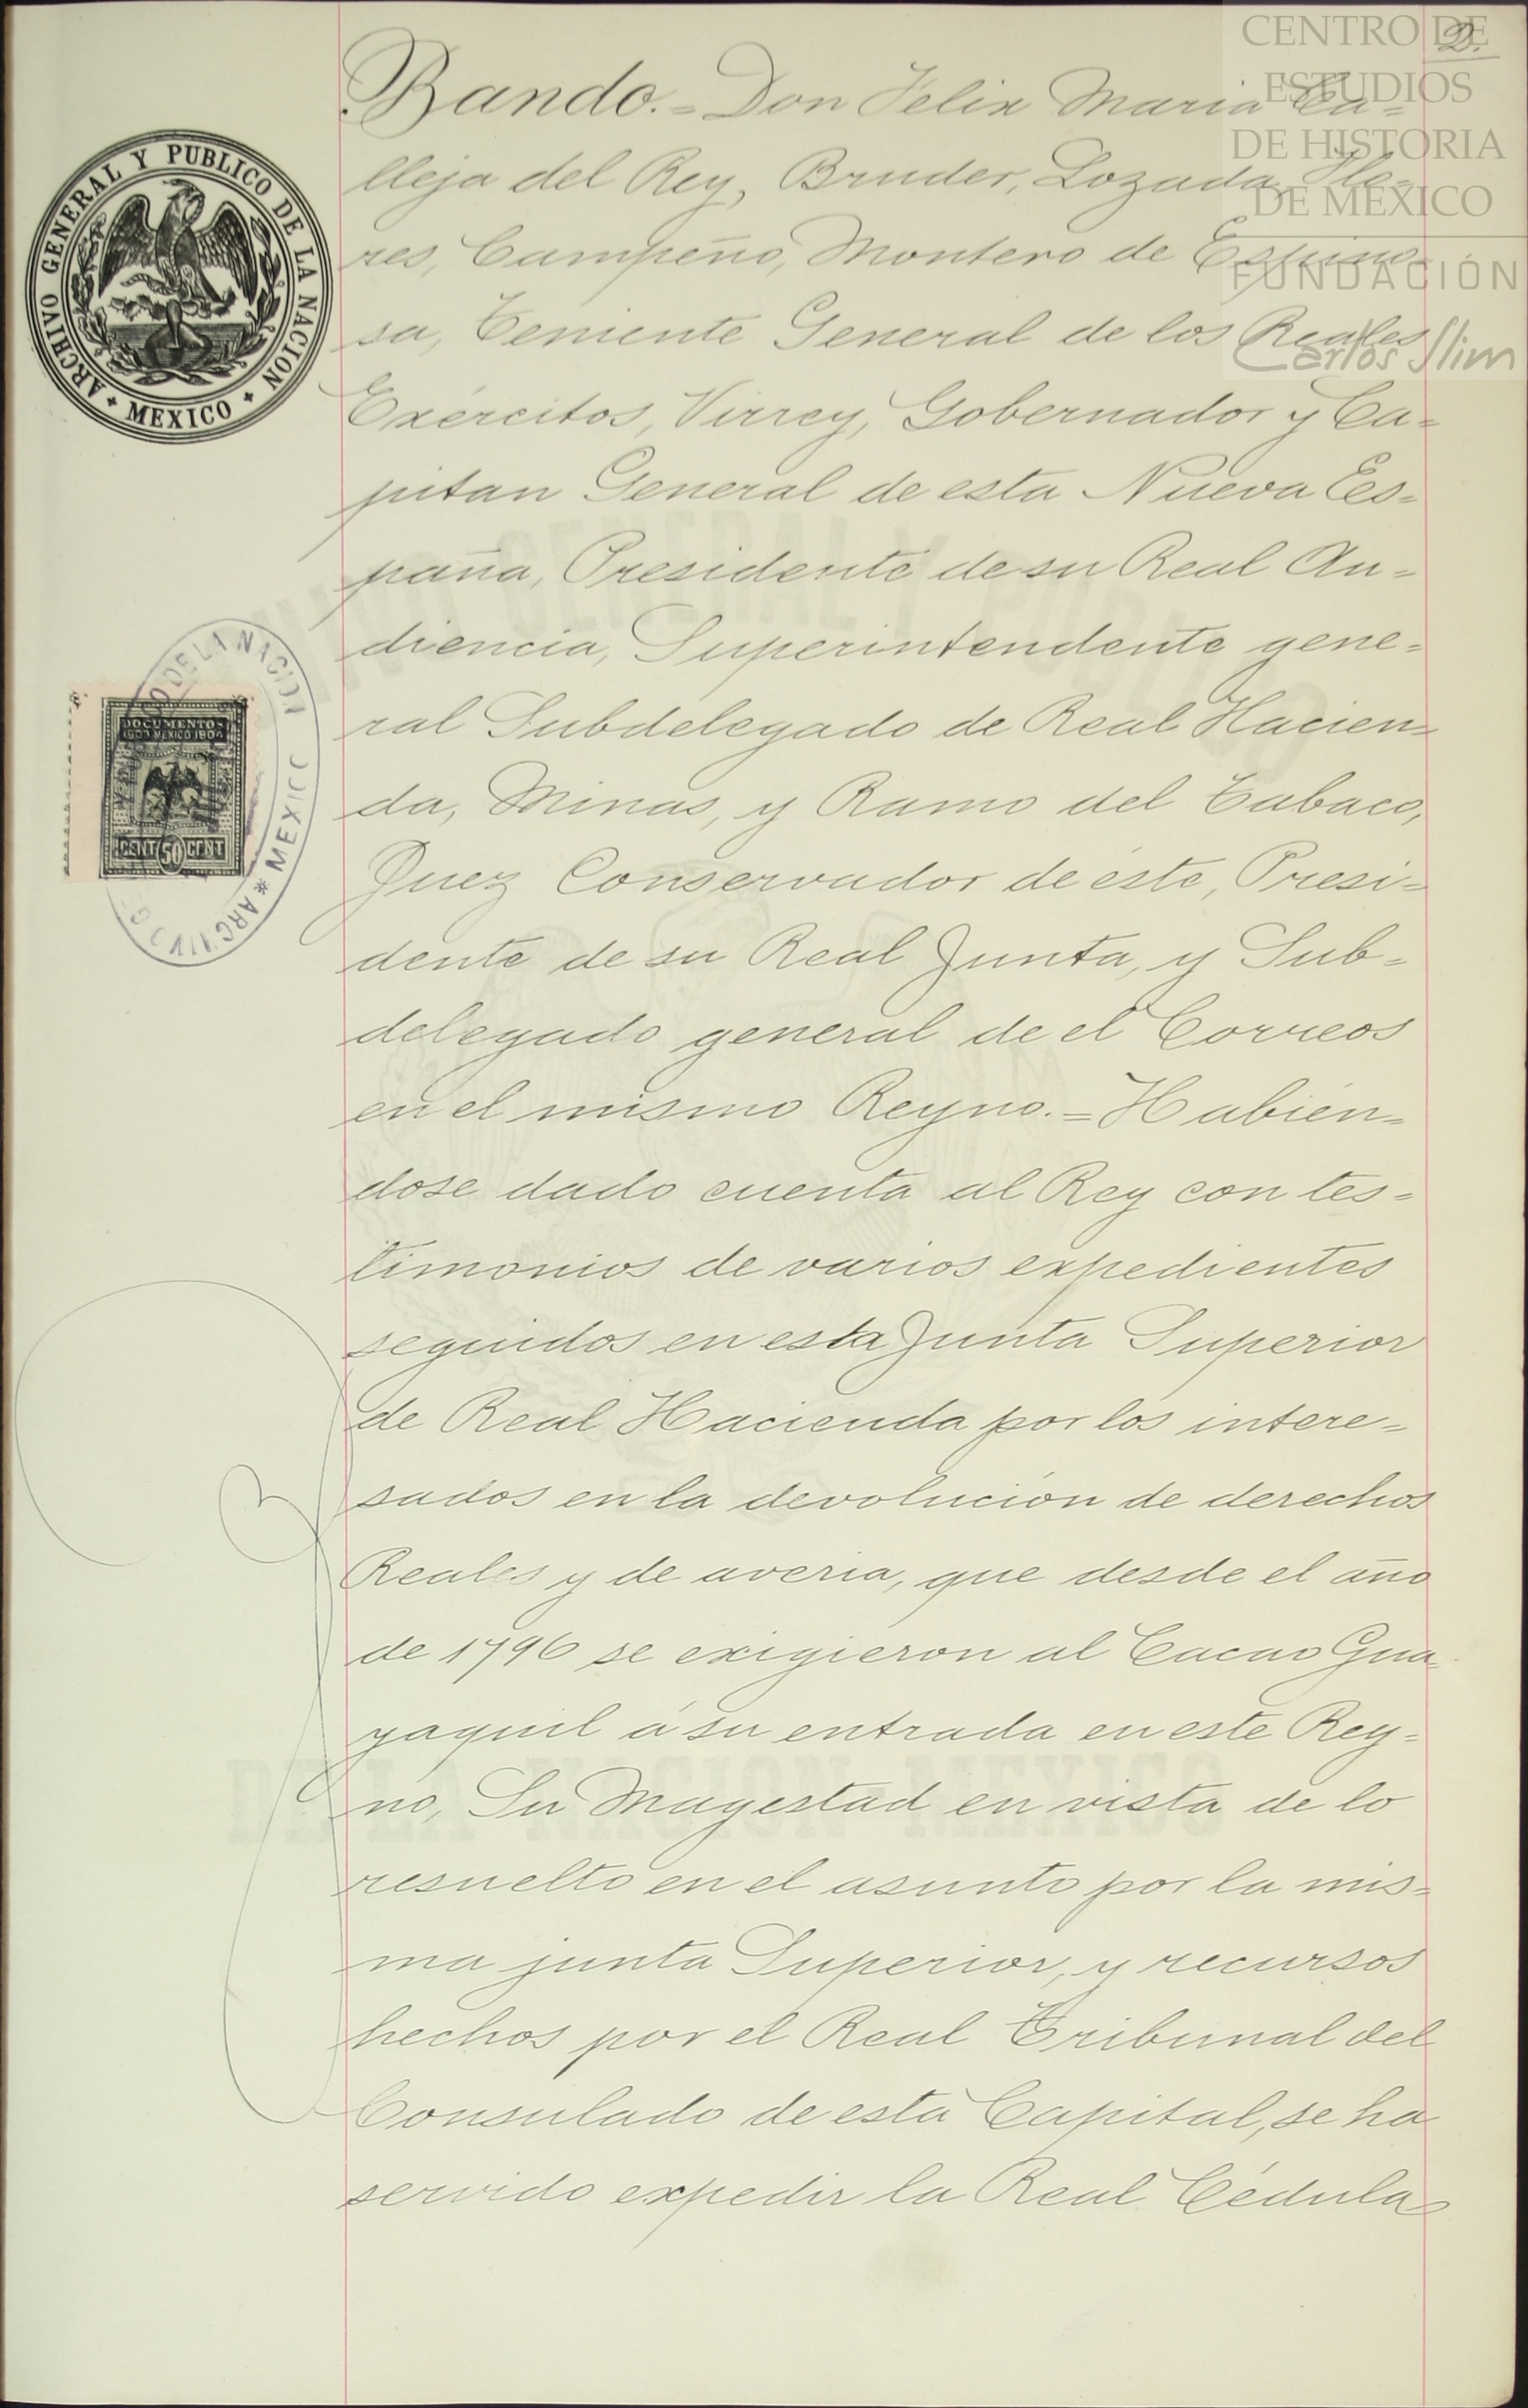 2.
Bando.= Don Felix Maria Ca=
lleja del Rey, Bruder, Lozada, Flo=
res, Campeño, Montero de Espino=
sa, Teniente General de los Reales
Exércitos, Virrey, Gobernador y Ca=
pitan General de esta Nueva Es=
paña, Presidente de su Real Au=
diencia, Superintendente gene=
ral Subdelegado de Real Hacien=
da, Minas, y Ramo del Tabaco,
Juez Conservador de éste, Presi=
dente de su Real Junta, y Sub=
delegado general de el Correos
en el mismo Reyno.= Habién=
dose dado cuenta al Rey con tes=
timonios de varios expedientes
seguidos en esta Junta Superior
de Real Hacienda por los intere=
sados en la devolución de derechos
Reales y de averia, que desde el año
de 1796 se exigieron al Cacao Gua
yaquil á su entrada en este Rey=
no, Su Magestad en vista de lo
resuelto en el asunto por la mis=
ma junta Superior, y recursos
hechos por el Real Tribunal del
Consulado de esta Capital, se ha
servido expedir la Real Cédula
ARCHIVO GENERAL Y PUBLICO DE LA NACION
MEXICO
DOCUMENTOS
1903 MEXICO 1904
CENT 50 CENT
DE LA NACION
MEXICO * ARCHIVO G
GENERAL Y PUBLICO
DE LA NACION MEXICO
CENTRO DE
ESTUDIOS
DE HISTORIA
DE MÉXICO
FUNDACIÓN
Carlos Slim